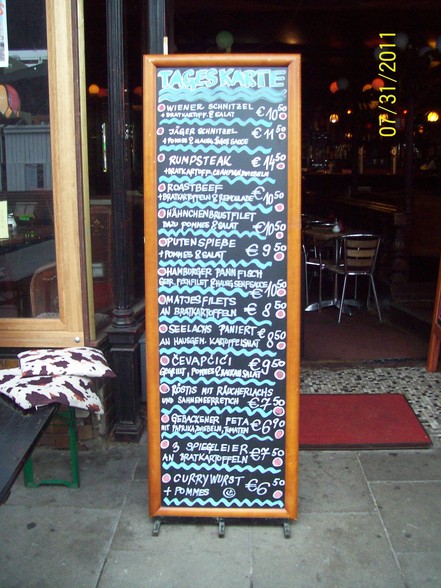 TAGESKARTE
WIENER SCHNITZEL €10 50
+ BRATKARTOFF. & SALAT
JÄGER SCHNITZEL €11 50
+ POMMES &
RUMPSTEAK €14 50
+ BRATKARTOFF. CHAMPIGNON ZWIEBELN
ROASTBEEF €10 50
+ BRATKARTOFFELN & REMOULADE
HÄHNCHENBRUSTFILET
DAZU POMMES & SALAT €10 50
PUTENSPIEßE €9 50
+ POMMES & SALAT
HAMBURGER PANNFISCH
GEBR. FISCHFILET & HAUSG. SENFSAUCE €10 50
MATJESFILETS €8 50
AN BRATKARTOFFELN
SEELACHS PANIERT €9 50
AN HAUSGEM. KARTOFFELSALAT
ČEVAPČIĆI €9 50
POMMES SALAT
RÖSTIS MIT RÄUCHERLACHS
UND SAHNEMEERRETTICH €7 50
GEBACKENER FETA €6 90
MIT PAPRIKA, ZWIEBELN, TOMATEN
3 SPIEGLEIER €7 50
AN BRATKARTOFFELN
CURRYWURST €6 50
+ POMMES
07/31/2011